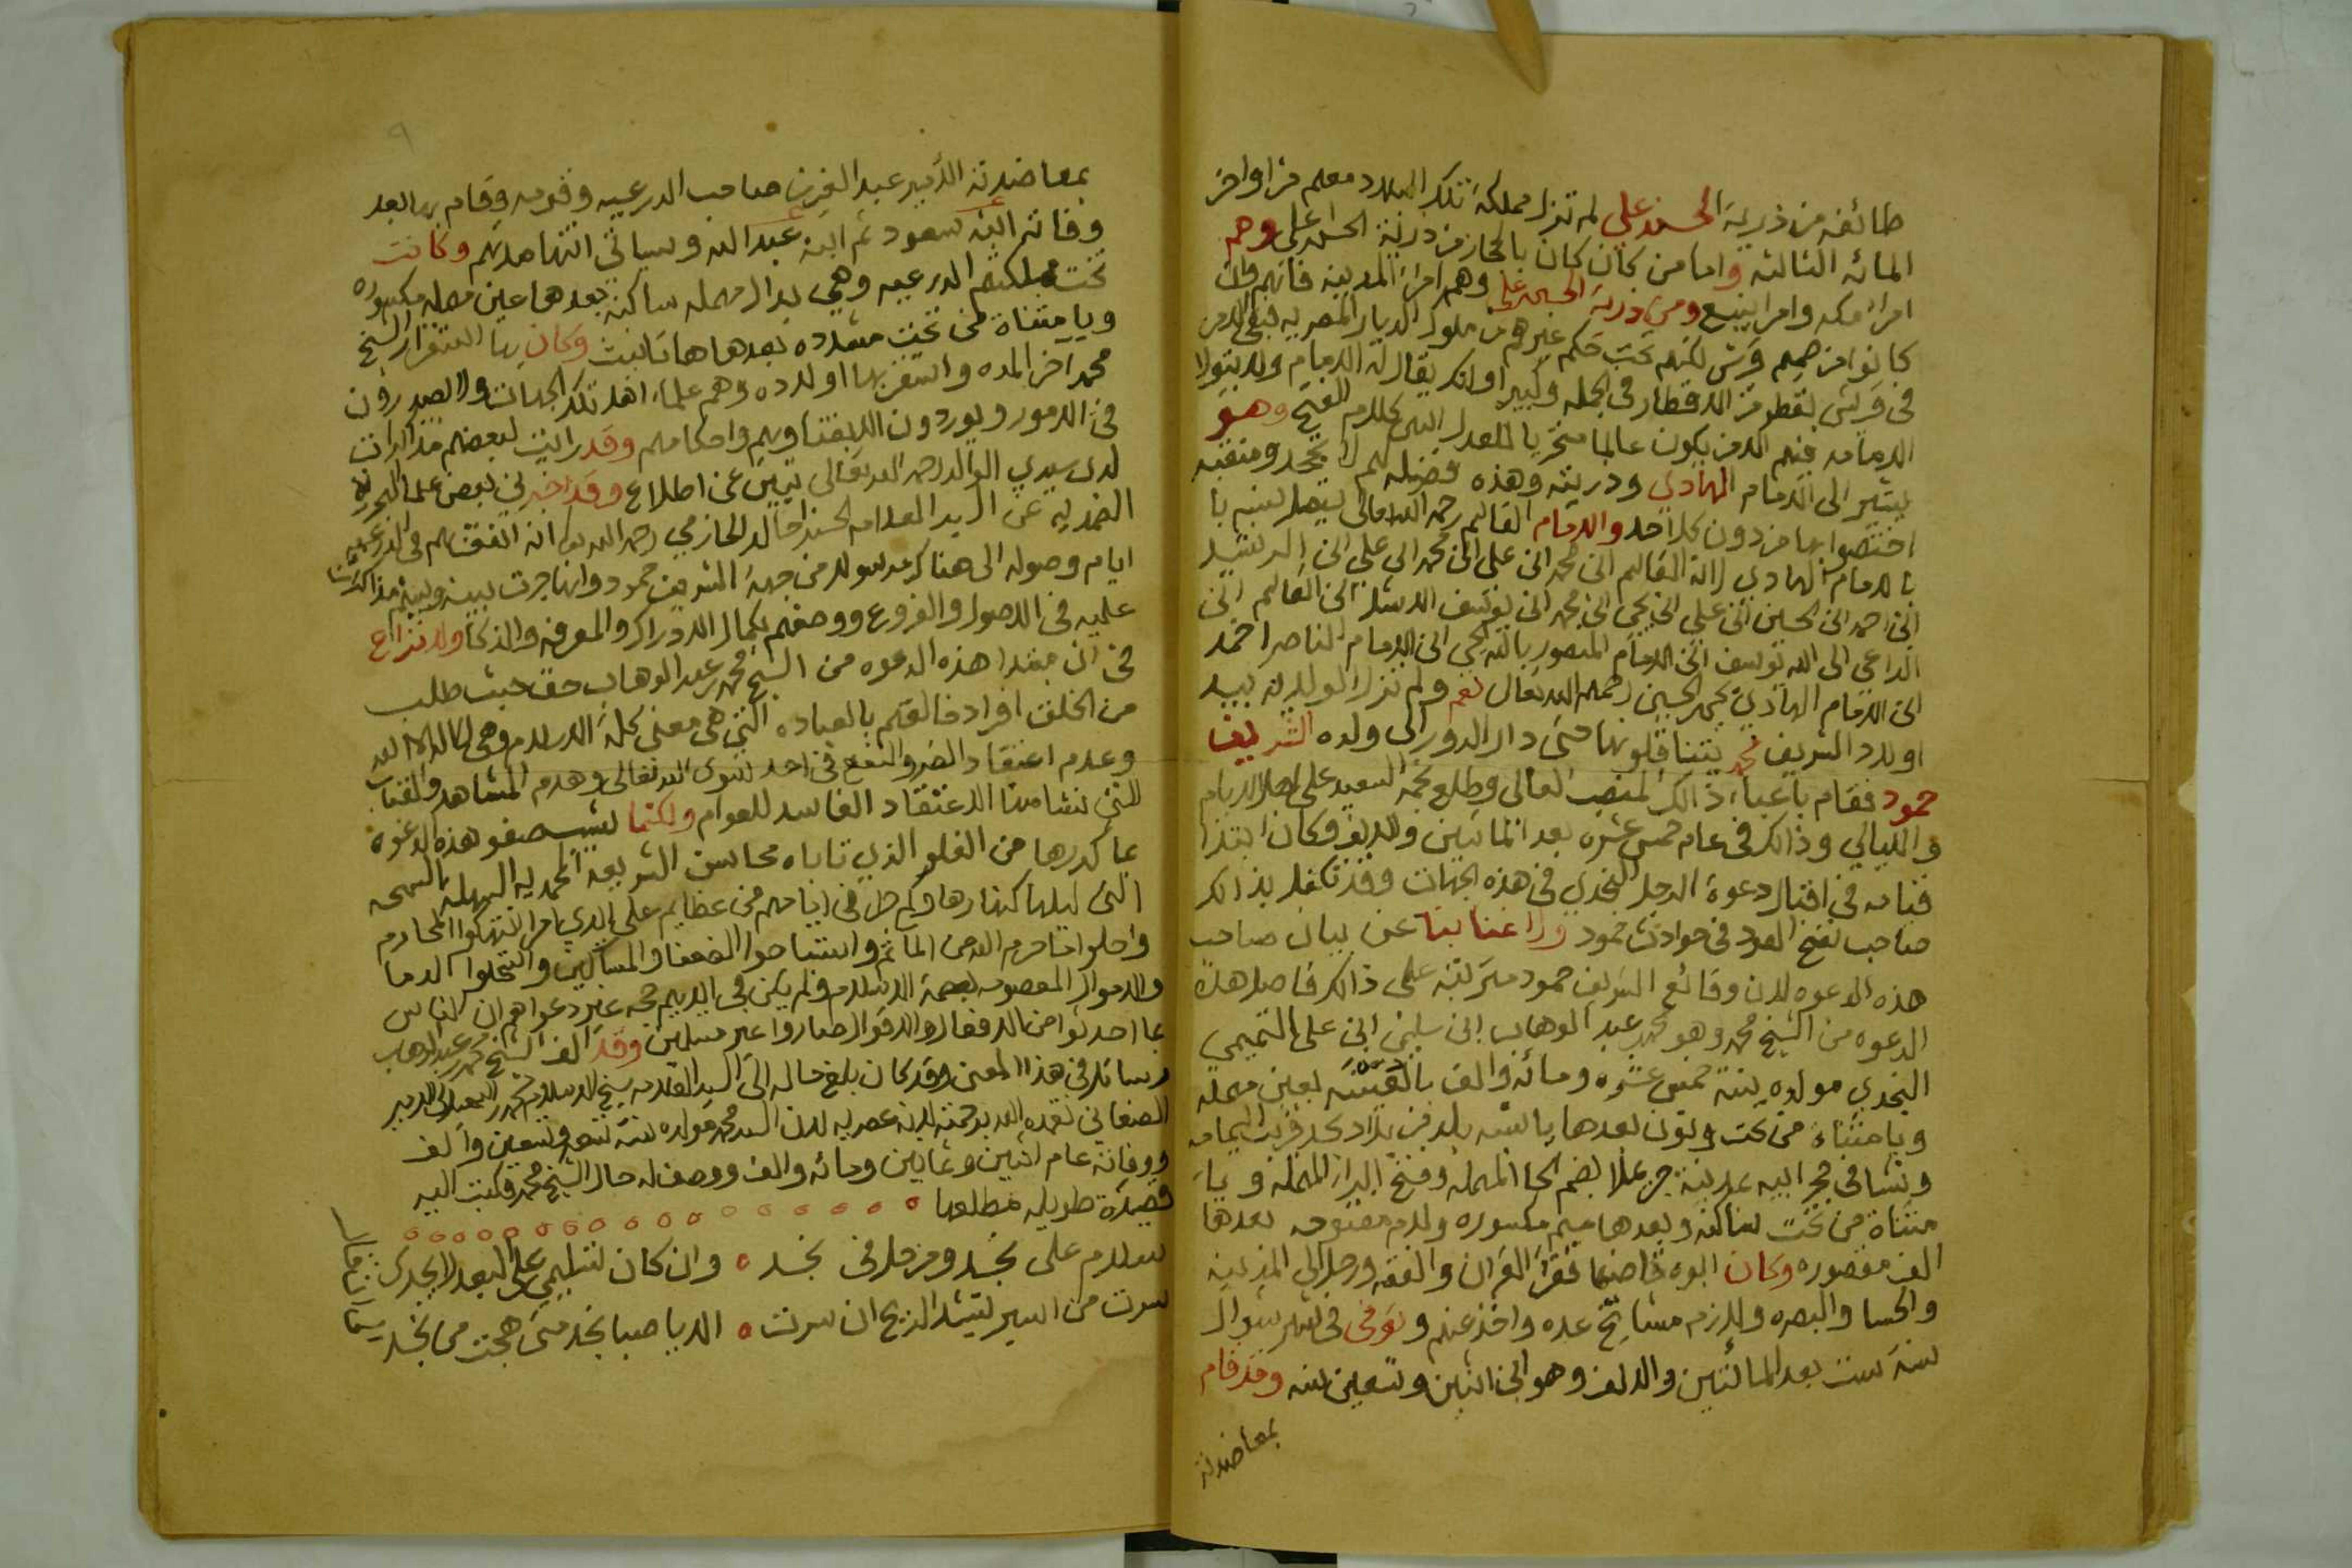 طائفه من ذرية الحسن بن علي لم تزل مملكة تلك البلاد معهم من اواخر
المائه الثالثه واما من كان بالحجاز من ذرية الحسن بن علي وهم
امرا مكه وامرا ينبع ومن ذرية الحسين بن علي وهم امرا المدينه فانهم وان
كانوا من صميم قريش لكنهم تحت حكم غيرهم من ملوك الديار المصريه فبقي الامر
في قريش بقطر من الاقطار في الجمله وكبير اولئك يقال له الامام ولا يتولا
الامامه فيهم الا من يكون عالما متحريا للعدل انتهى كلام الفتح وهو
يشير الى الامام الهادي وذريته وهذه فضيله لهم لا تجحد ومنقبه
اختصوا بها من دون كل احد والامام القاسم رحمه الله تعالى يتصل نسبه با
بالامام الهادي لانه القاسم ابن محمد ابن علي ابن محمد ابن علي ابن الرشيد
ابن احمد ابن الحسين ابن علي ابن يحيى ابن محمد ابن يوسف الاشل ابن القاسم ابن
الداعي الى الله يوسف ابن الامام المنصور بالله يحيى ابن الامام الناصر احمد
ابن الامام الهادي يحيى بن الحسين رحمهم الله تعالى نعم ولم تزل الولايه بيد
اولاد الشريف محمد يتناقلونها حتى دار الدور الى ولده الشريف
حمود فقام باعباء ذالك المنصب العالي وطلع نجمه السعيد على اهل الايام
والليالي وذالك في عام خمس عشره بعد المائتين والالف وكان ابتدا
قيامه في اقبال دعوة الرجل النجدي في هذه الجهات وقد تكفل بذالك
صاحب نفح العود في حوادث حمود ولا غنا بنا عن بيان صاحب
هذه الدعوه لان وقائع الشريف حمود مترتبه على ذالك فاصل هذه
الدعوه من الشيخ محمد وهو محمد بن عبد الوهاب ابن سليمن ابن علي التميمي
النجدي مولده سنة خمس عشره ومائه والف بالعيينه بعين مهمله
ويا مثناة من تحت ونون بعدها يا نسبه بلد من بلاد نجد قريب اليمامه
ونشا في حجر ابيه بمدينة حريملا بضم الحا المهمله وفتح الرا المهمله ويا
مثناة من تحت ساكنه وبعدها ميم مكسوره ولام مفتوحه بعدها
الف مقصوره وكان ابوه قاضيها فقرا القران والفقه ورحل الى المدينه
والحسا والبصره ولازم مشايخ عده واخذ عنهم وتوفى في شهر شوال
سنة ست بعد المائتين والالف وهو ابن اثنين وتسعين سنه وقد قام
بمعاضدته
بمعاضدته الامير عبد العزيز صاحب الدرعيه وقومه وقام بها بعد
وفاته ابنه سعود ثم ابنه عبد الله وسياتي انتها مدتهم وكانت
تخت مملكتهم الدرعيه وهي بدال مهمله ساكنه بعدها عين مهمله مكسوره
ويا مثناة من تحت مشدده بعدها ها تانيث وكان بها استقرار الشيخ
محمد اخر المده واستقر بها اولاده وهم علماء اهل تلك الجهات ولا يصدرون
في الامور ويوردون الا بفتاويهم واحكامهم وقد رايت لبعضهم مذاكرات
لدى سيدي الوالد رحمه الله تعالى تبين عن اطلاع وقد اخبرني بعض علما
عن السيد العلامه الحسن بن خالد الحازمي رحمه الله تعالى انه اتفق بهم في الدرعيه
ايام وصوله الى هناك رسولا من جهة الشريف حمود وانها جرت بينه وبينهم مذاكرات
علميه في الاصول والفروع ووصفهم بكمال الادراك والمعرفه والذكا ولا نزاع
في ان مبتدا هذه الدعوه من الشيخ محمد بن عبد الوهاب حق حيث طلب
من الخلق افراد خالقهم بالعباده التي هي معنى كلمة الاسلام وهي لا اله الا الله
وعدم اعتقاد الضر والنفع في احد سوى الله تعالى وهدم المشاهد والقباب
التي نشا منها الاعتقاد الفاسد للعوام ولكنها لم تصفو هذه الدعوة
عما كدرها من الغلو الذي تاباه محاسن الشريعه المحمديه السهله السمحه
التي ليلها كنهارها وكم حل في ايامهم من عظايم على ايدي امرا انتهكوا المحارم
واحلوا ما حرم الله من الماثم واستباحوا الضعفا والمساكين واستحلوا الدما
والاموال المعصومه بعصمة الاسلام ولم يكن في ايديهم حجه غير دعواهم ان الناس
بما احدثوا من الافعال والاقوال صاروا غير مسلمين وقد الف الشيخ محمد بن عبد الوهاب
رسائل في هذا المعنى وقد كان بلغ حاله الى السيد العلامه شيخ الاسلام محمد بن اسمعيل الامير
الصنعاني تغمده الله برحمته لانه عصريه لان السيد محمد مولده سنة تسع وتسعين والف
ووفاته عام اثنين وثمانين ومائه والف ووصف له حال الشيخ محمد فكتب اليه
قصيدة طويله مطلعها
سلام على نجد ومن حل في نجد وان كان تسليمي على البعد لا يجدي
سرت من اسير ينشد الريح ان سرت الا يا صبا نجد متى هجت من نجد